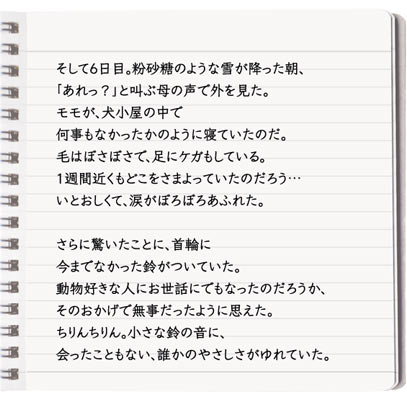 そして6日目。粉砂糖のような雪が降った朝、
「あれっ？」と叫ぶ母の声で外を見た。
モモが、犬小屋の中で
何事もなかったかのように寝ていたのだ。
毛はぼさぼさで、足にケガもしている。
1週間近くもどこをさまよっていたのだろう…
いとおしくて、涙がぽろぽろあふれた。
さらに驚いたことに、首輪に
今までなかった鈴がついていた。
動物好きな人にお世話にでもなったのだろうか、
そのおかげで無事だったように思えた。
ちりんちりん。小さな鈴の音に、
会ったこともない、誰かのやさしさがゆれていた。